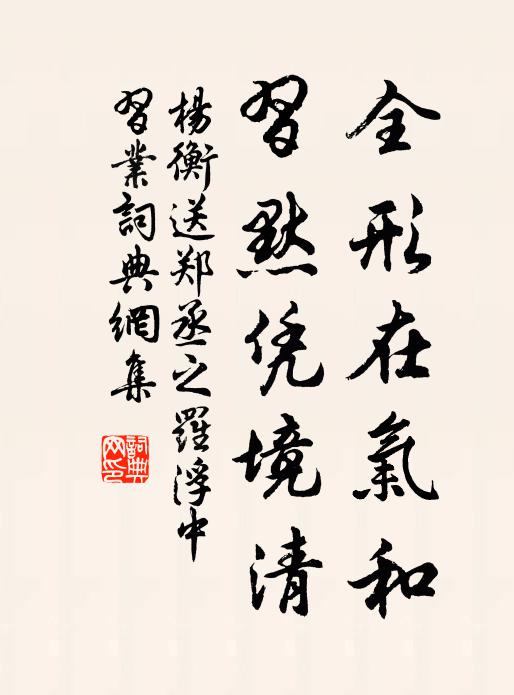 全形在氣和
習默凭境清
楊衡送郑丞之羅浮中
習業詞典網集
詞典网印